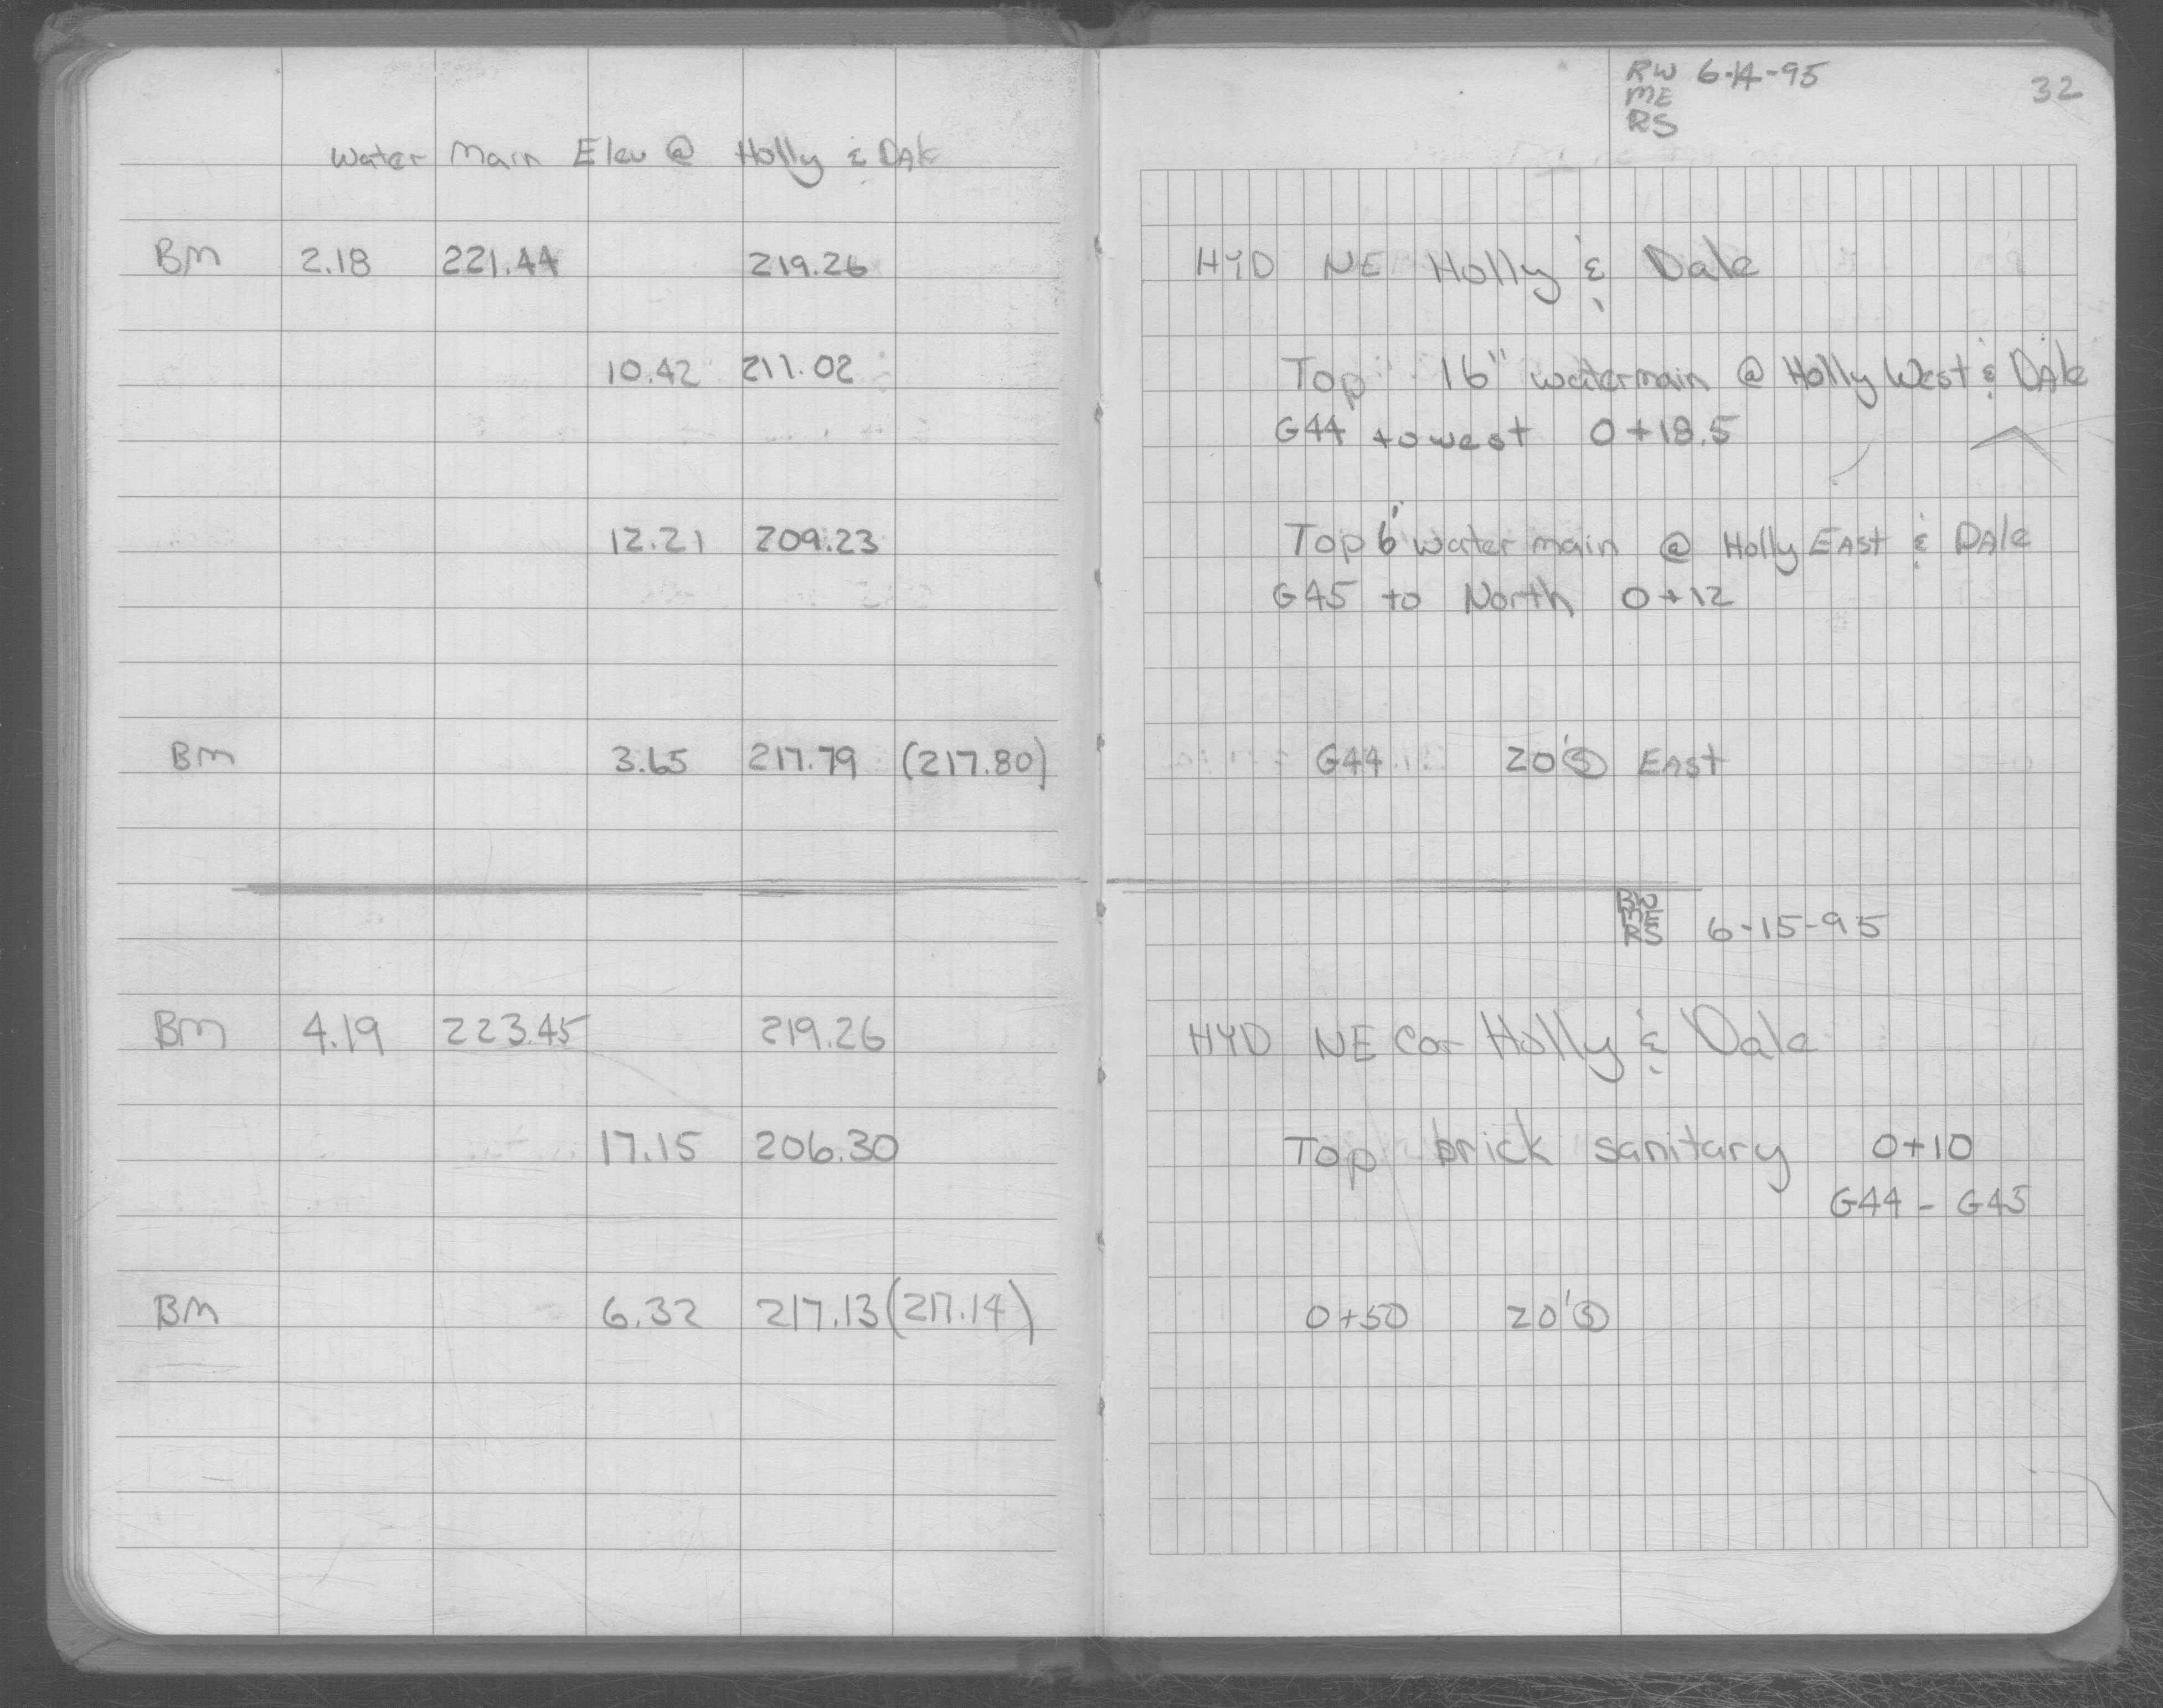 Water Main Elev @ Holly & DAle
BM 2.18 221.44 219.26
10.42 211.02
12.21 209.23
BM 3.65 217.79 (217.80)
BM 4.19 223.45 219.26
17.15 206.30
BM 6.32 217.13 (217.14)
RW 6-14-95
ME
RS
32
HYD NE Holly & Dale
Top 16" watermain @ Holly West & DAle
G44 to west 0+18.5
Top 6" water main @ Holly EAst & DAle
G45 to North 0+12
G44 20' Ⓢ EAst
RW
ME
RS 6-15-95
HYD NE Cor Holly & Dale
Top brick sanitary 0+10
G44 - G45
0+50 20' Ⓢ